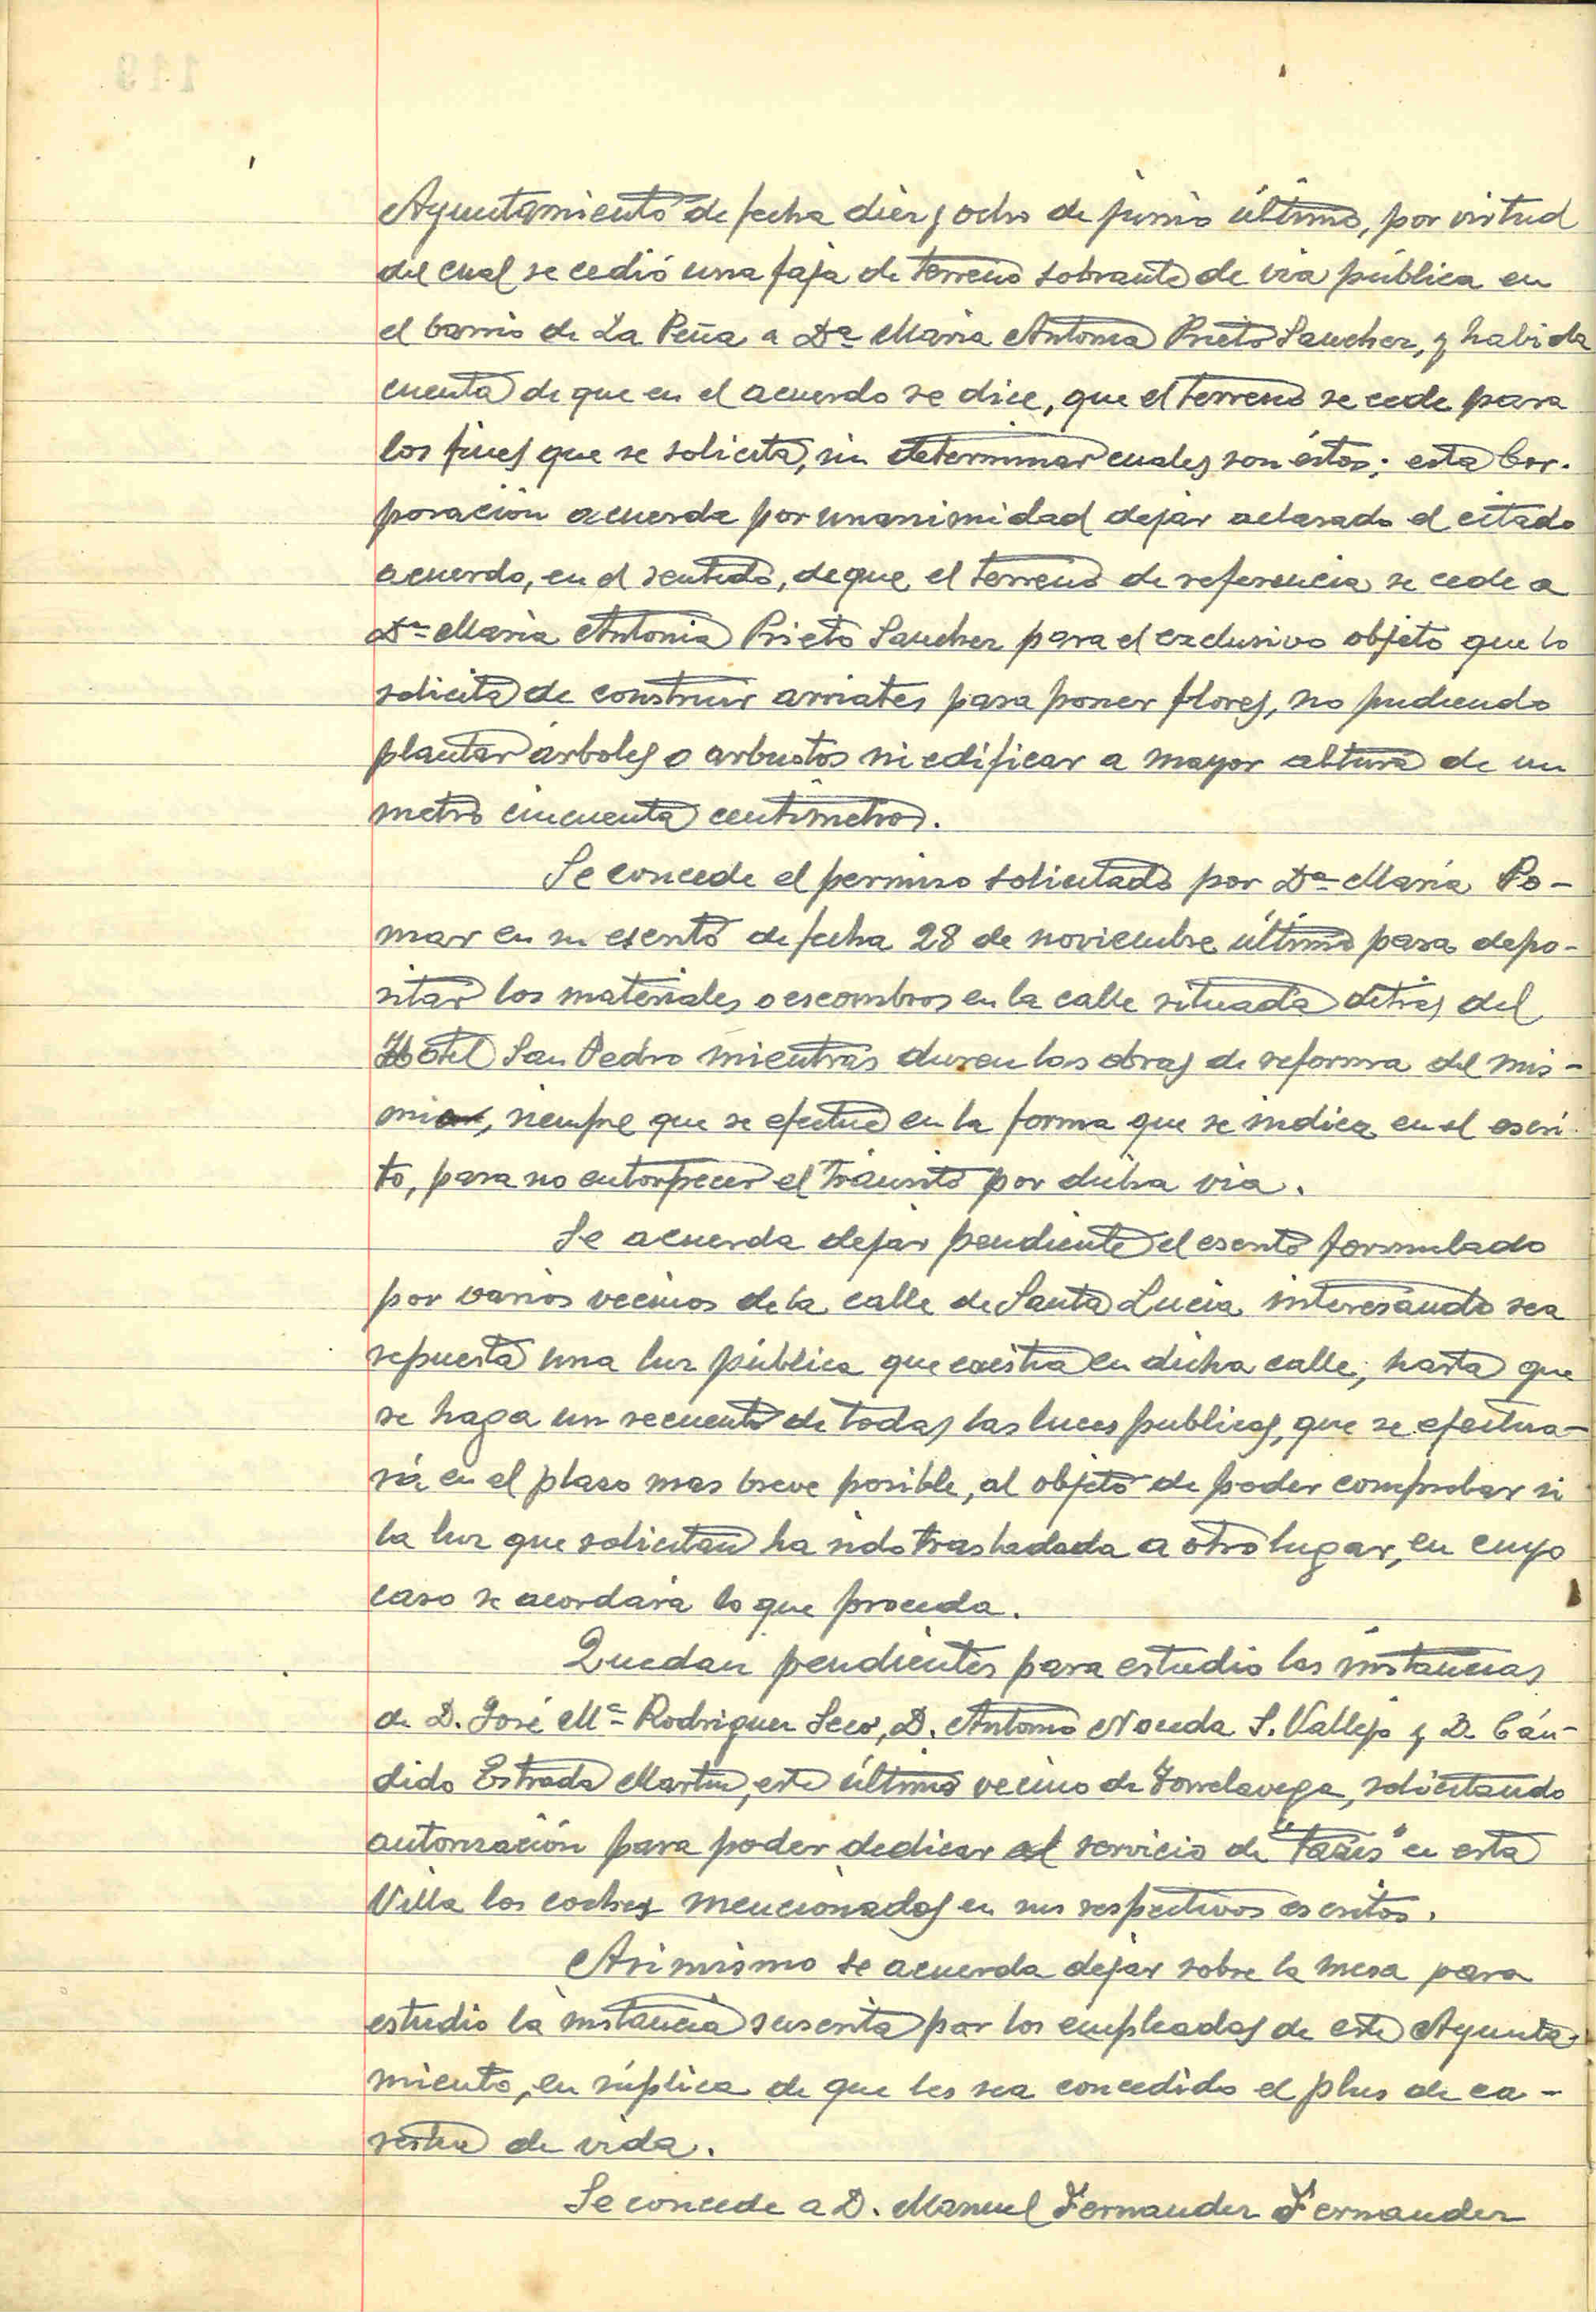 Ayuntamiento de fecha diez y ocho de junio último, por virtud
del cual se cedió una faja de terreno sobrante de via pública en
el barrio de La Peña a Dª Maria Antonia Prieto Sanchez, y habida
cuenta de que en el acuerdo se dice, que el terreno se cede para
los fines que se solicita, sin determinar cuales son éstos; esta Cor-
poración acuerda por unanimidad dejar aclarado el citado
acuerdo, en el sentido, de que el terreno de referencia se cede a
Dª Maria Antonia Prieto Sanchez para el exclusivo objeto que lo
solicita de construir arriates para poner flores, no pudiendo
plantar árboles o arbustos ni edificar a mayor altura de un
metro cincuenta centímetros.
Se concede el permiso solicitado por Dª María Po-
mar en su escrito de fecha 28 de noviembre último para depo-
sitar los materiales o escombros en la calle situada detras del
Hotel San Pedro mientras duren las obras de reforma del mis-
mo, siempre que se efectue en la forma que se indica en el escri-
to, para no entorpecer el tránsito por dicha via.
Se acuerda dejar pendiente el escrito formulado
por varios vecinos de la calle de Santa Lucia interesando sea
repuesta una luz pública que existia en dicha calle, hasta que
se haga un recuento de todas las luces publicas, que se efectua-
rá en el plazo mas breve posible, al objeto de poder comprobar si
la luz que solicitan ha sido trasladada a otro lugar, en cuyo
caso se acordará lo que proceda.
Quedan pendientes para estudio las instancias
de D. José Mª Rodriguez Seco, D. Antonio Noceda S. Vallejo y D. Cán-
dido Estrada Martin, este último vecino de Torrelavega, solicitando
autorización para poder dedicar al servicio de "taxis" en esta
Villa los coches mencionados en sus respectivos escritos.
Asimismo se acuerda dejar sobre la mesa para
estudio la instancia suscrita por los empleados de este Ayunta-
miento, en súplica de que les sea concedido el plus de ca-
restia de vida.
Se concede a D. Manuel Fernandez Fernandez